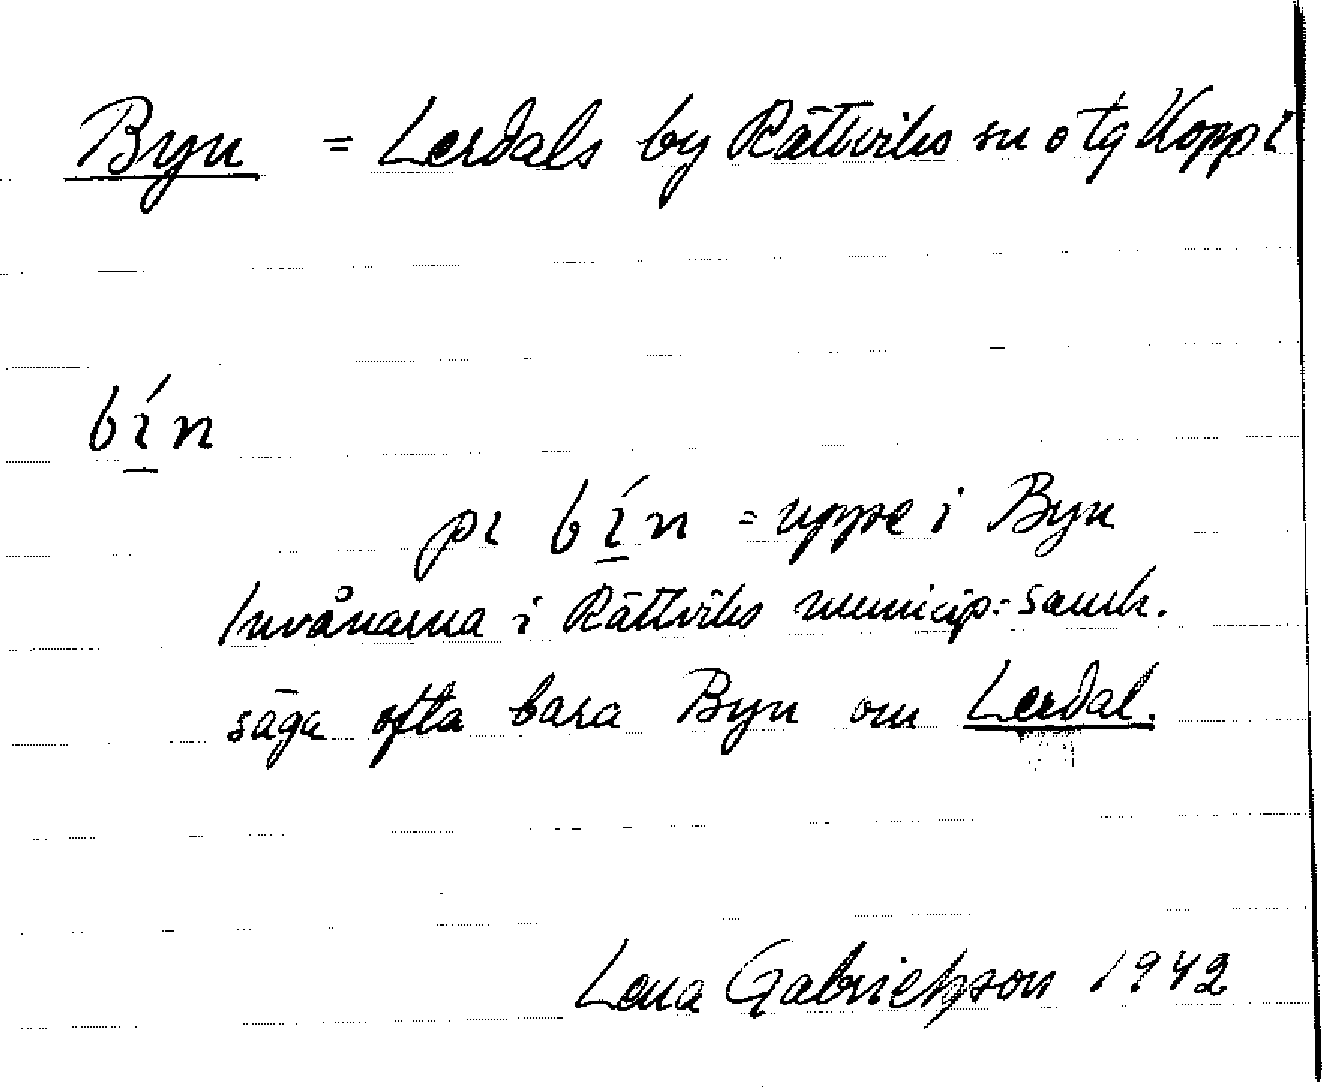 Byn = Lerdals by Rättviks sn o tg Koppl
bín
pı bín = uppe i Byn
Invånarna i Rättviks municip.-samh.
säga ofta bara Byn om Lerdal.
Lena Gabrielsson 1942